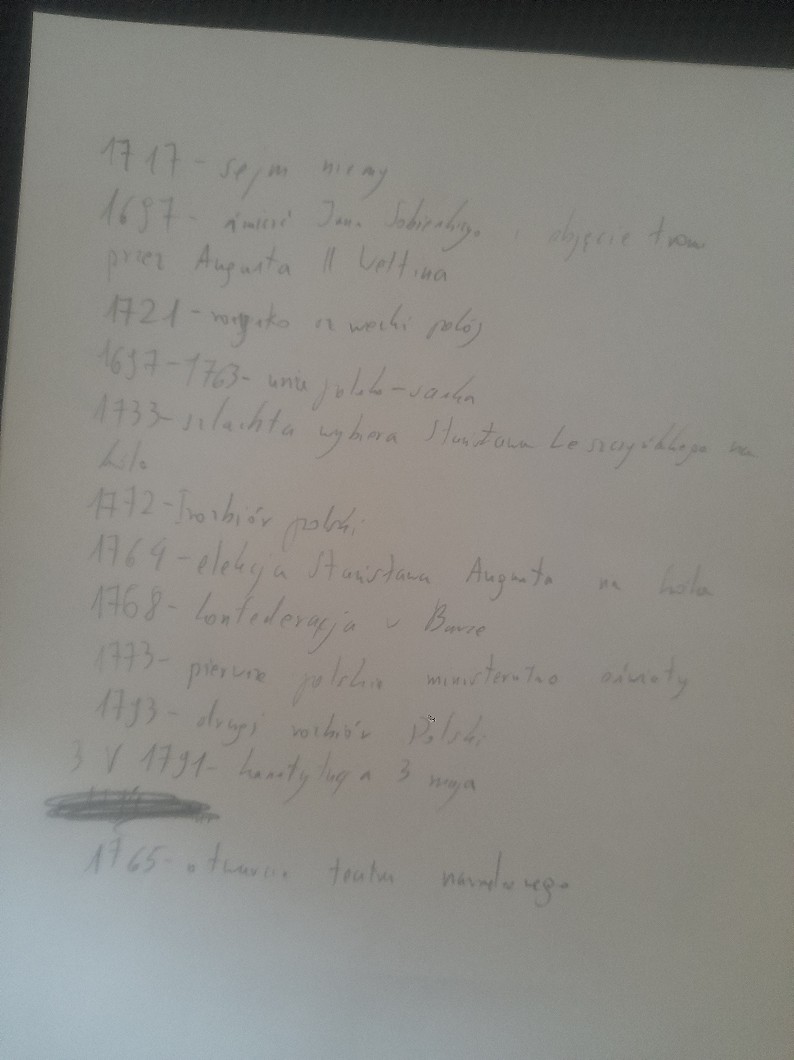 1717 - sejm niemy
1697 - śmierć Jana Sobieskiego i objęcie tronu
przez Augusta II Wettina
1721 - wieczki pokój
1697-1763 - unia polsko-saska
1733 - szlachta wybiera Stanisława Leszczyńskiego na
króla
1772 - I rozbiór polski
1764 - elekcja Stanisława Augusta na króla
1768 - konfederacja w Barze
1773 - pierwsze polskie ministerstwo oświaty
1793 - drugi rozbiór Polski
3 V 1791 - konstytucja 3 maja
1765 - otwarcie teatru narodowego